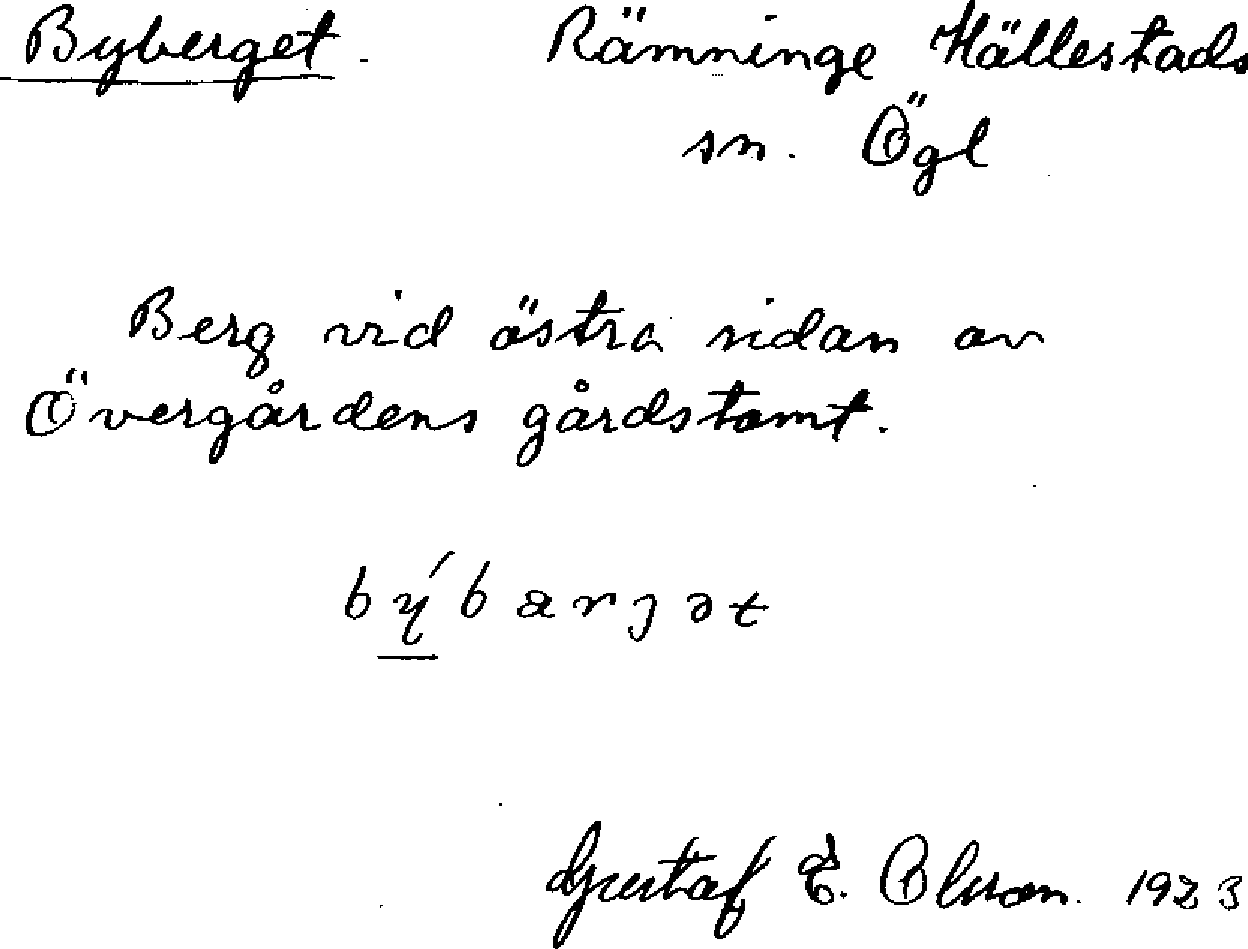 Byberget. Rämninge Hällestads
sn. Ögl
Berg vid östra sidan av
Övergårdens gårdstomt.
býbarjət
Gustaf E. Olson. 1923